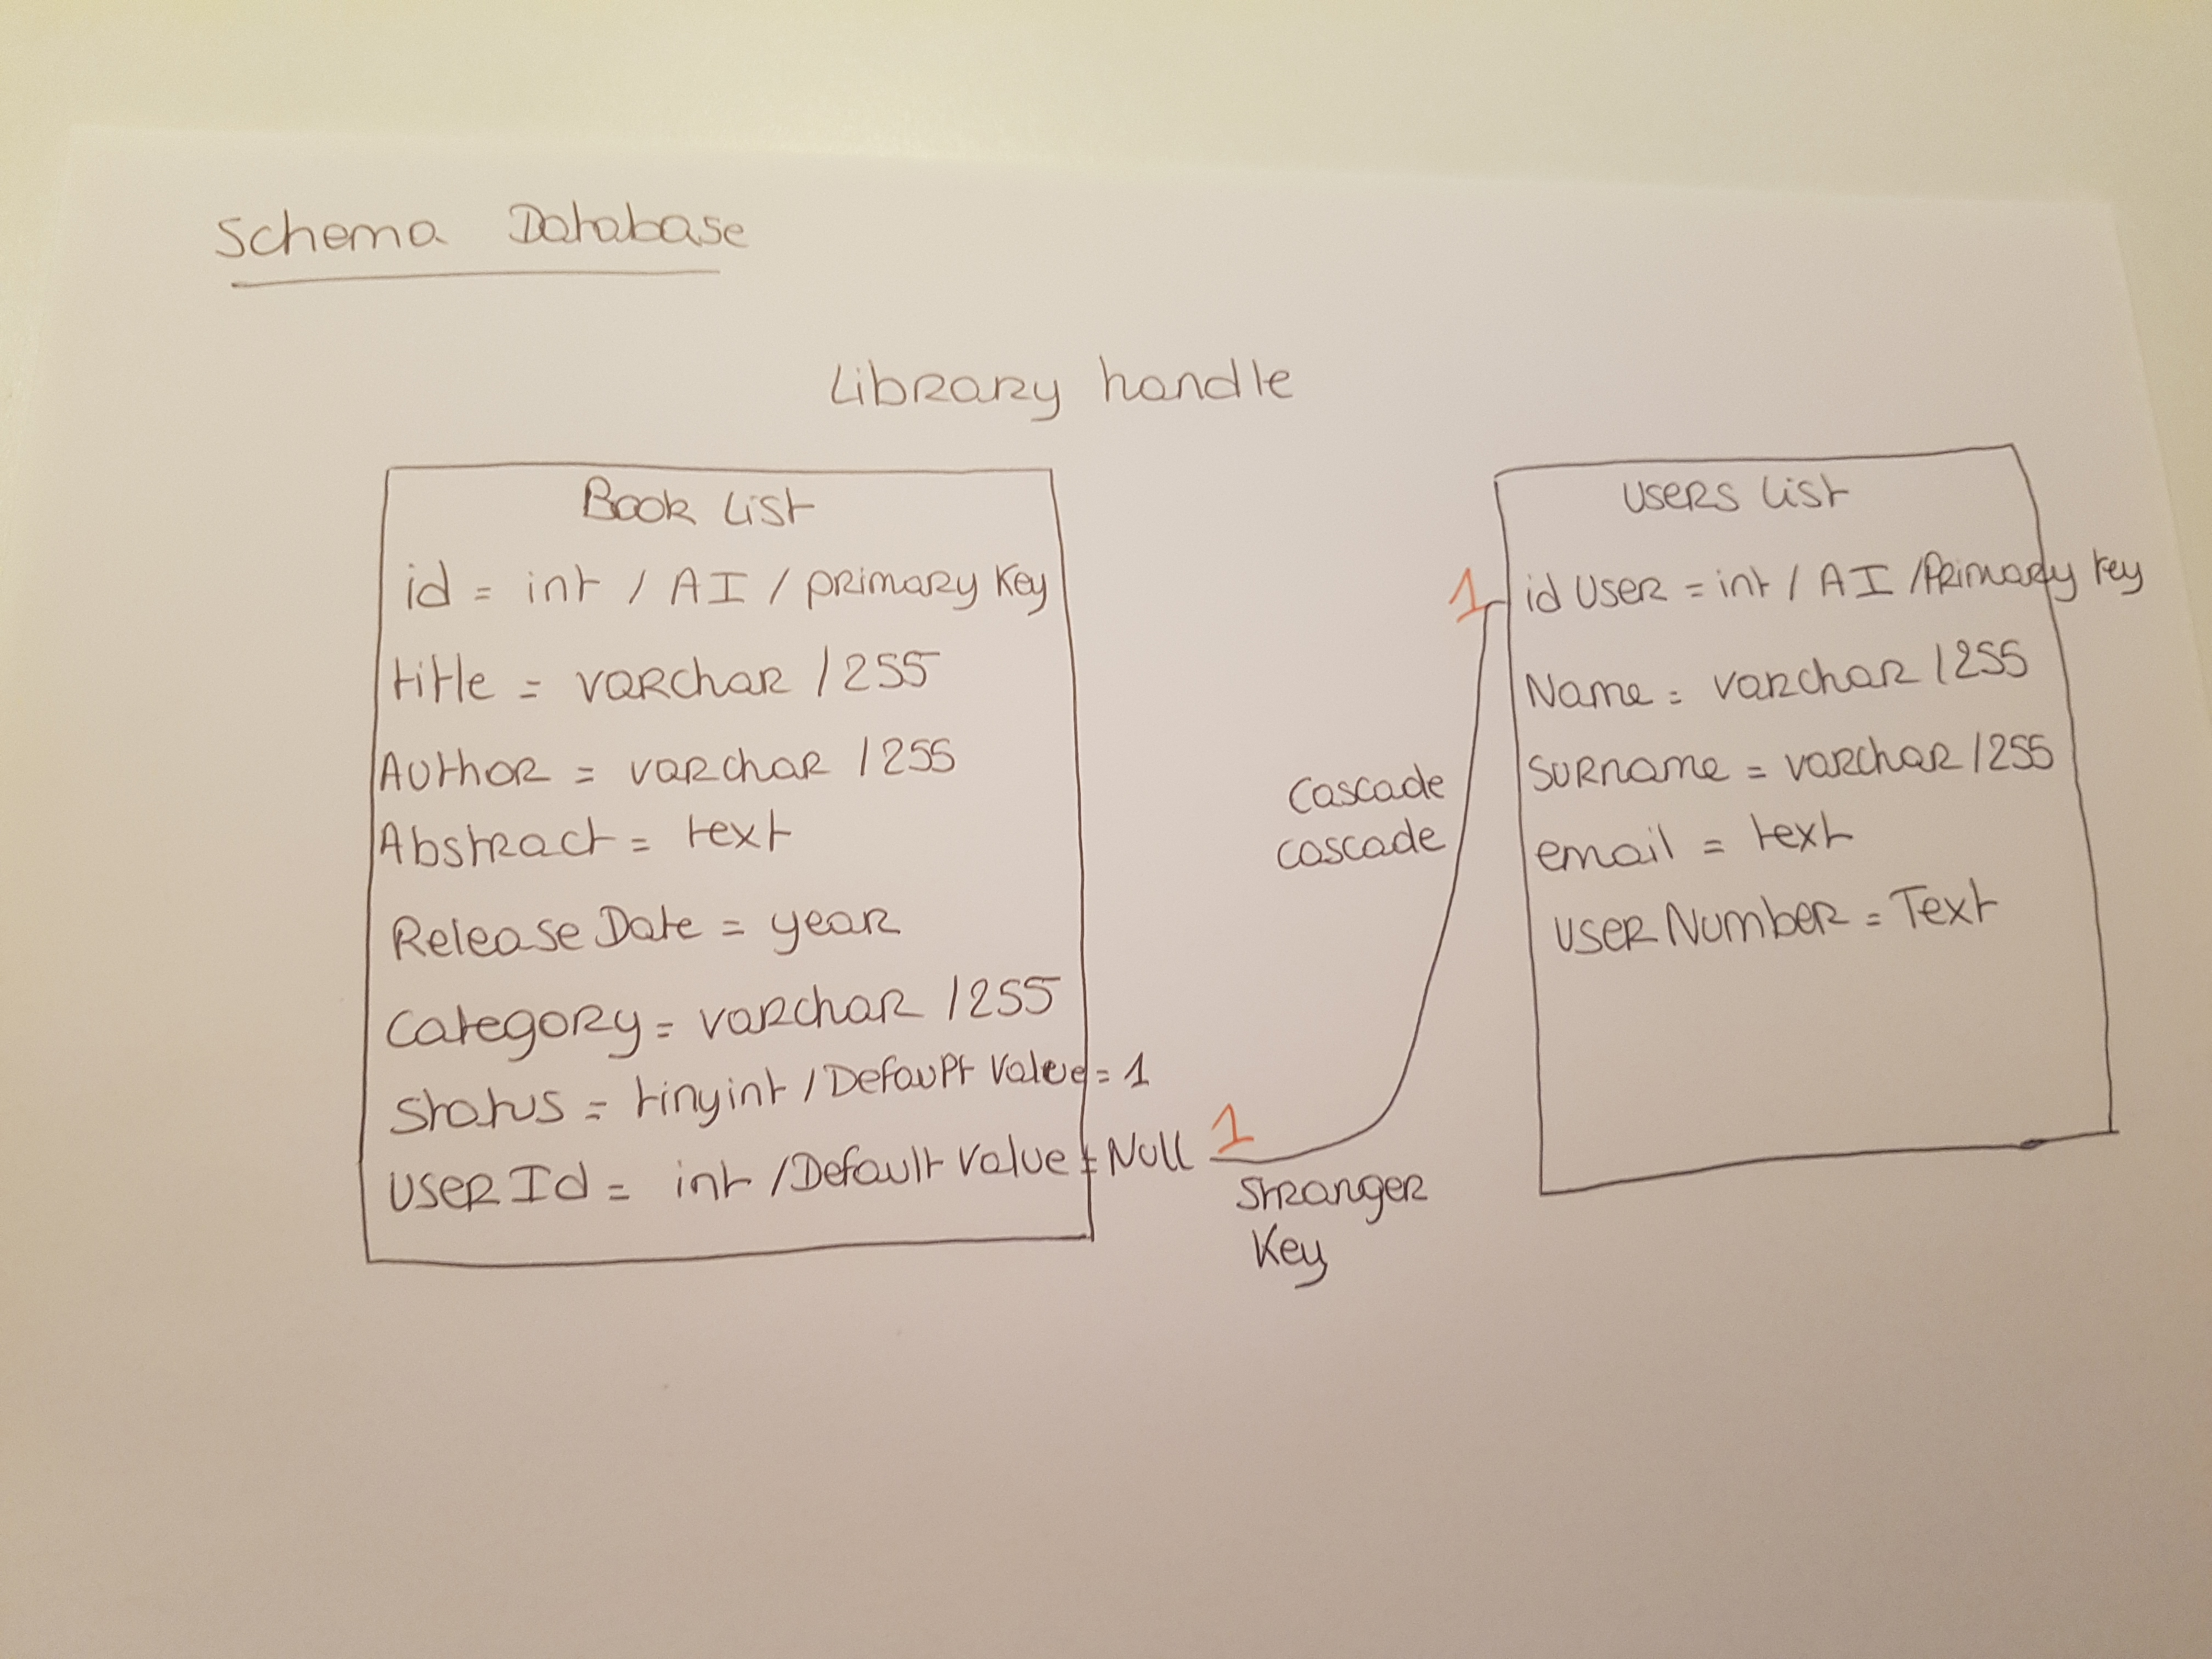 Schema Database
Library handle
Book List
id = int / AI / primary Key
title = varchar / 255
Author = varchar / 255
Abstract = text
Release Date = year
Category = varchar / 255
Status = tinyint / Default Value = 1
User Id = int / Default Value = Null
1
Stranger
Key
Cascade
cascade
1
Users List
id User = int / AI / Primary key
Name = varchar / 255
Surname = varchar / 255
email = text
User Number = Text